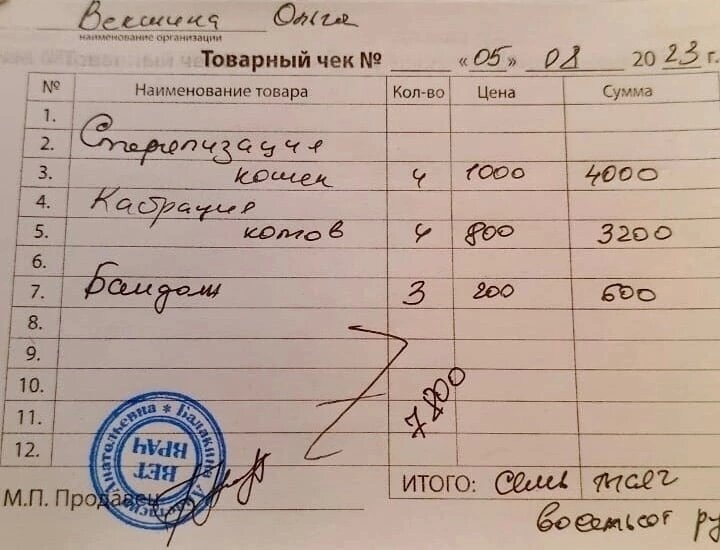 Векшина Ольга
наименование организации
Товарный чек № «05» 08 2023 г.
№ Наименование товара Кол-во Цена Сумма
1.
2. Стерелизация
3. кошек 4 1000 4000
4. Кастрация
5. котов 4 800 3200
6.
7. Бандаж 3 200 600
8.
9.
10.
11.
12.
7800
Анатольевна * Балакина
ВЕТ
ВРАЧ
М.П. Продавец
ИТОГО: Семь тысяч
восемьсот ру